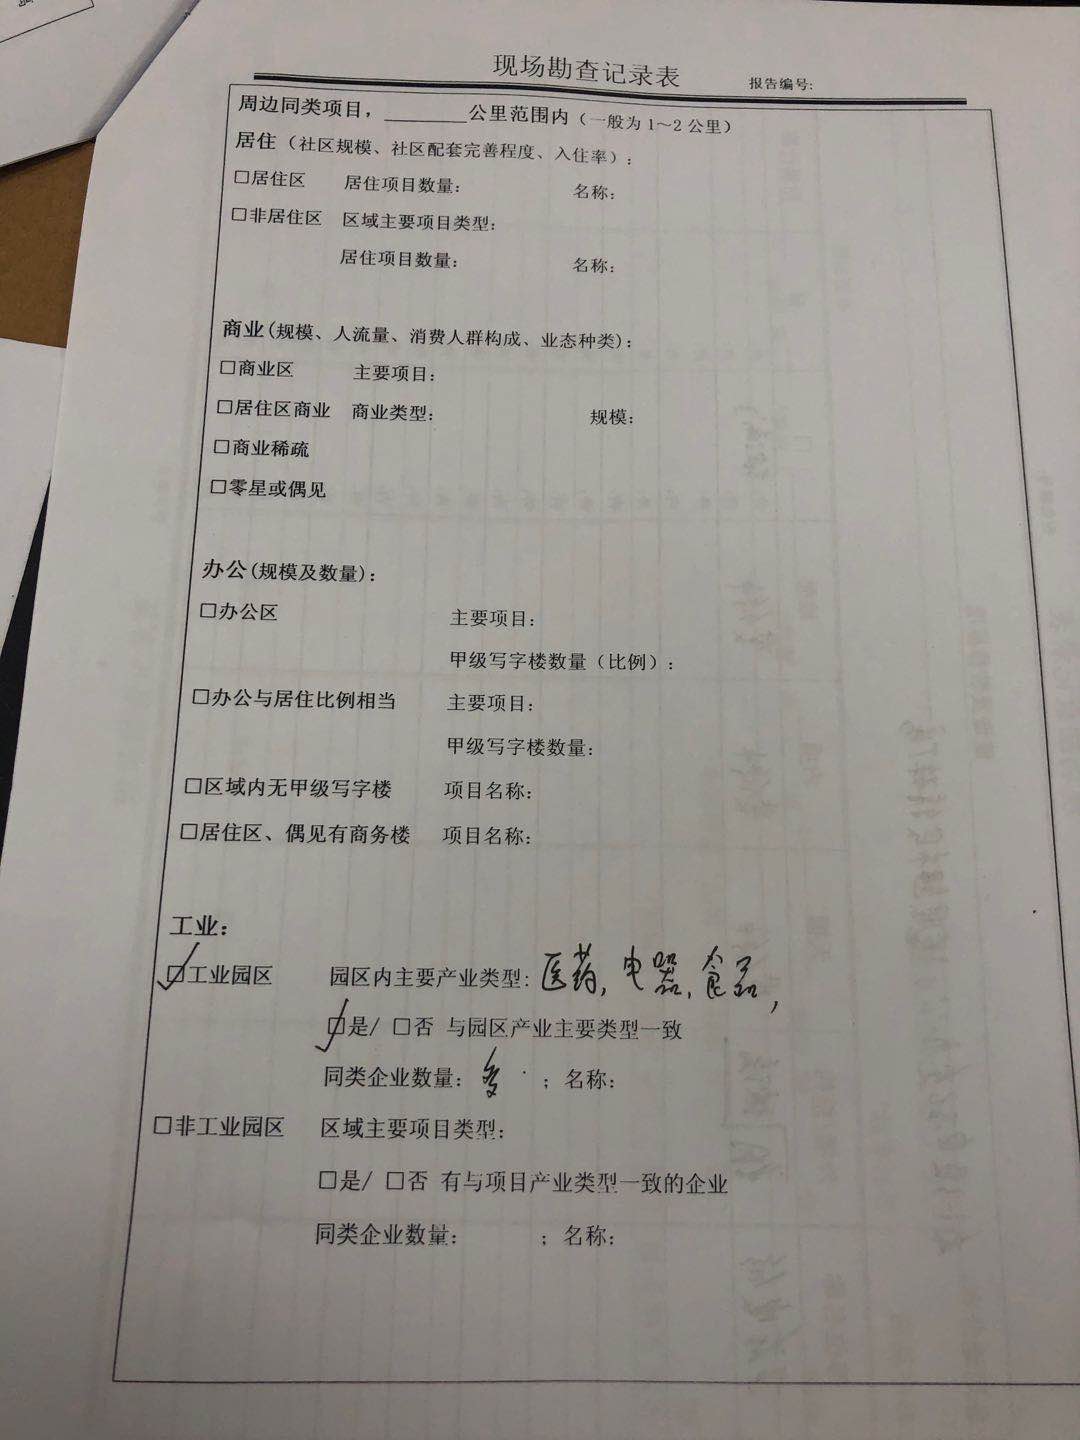 现场勘查记录表
报告编号:
周边同类项目，________公里范围内（一般为1～2公里）
居住（社区规模、社区配套完善程度、入住率）:
□居住区 居住项目数量: 名称:
□非居住区 区域主要项目类型:
居住项目数量: 名称:
商业(规模、人流量、消费人群构成、业态种类):
□商业区 主要项目:
□居住区商业 商业类型: 规模:
□商业稀疏
□零星或偶见
办公(规模及数量):
□办公区 主要项目:
甲级写字楼数量（比例）:
□办公与居住比例相当 主要项目:
甲级写字楼数量:
□区域内无甲级写字楼 项目名称:
□居住区、偶见有商务楼 项目名称:
工业:
☑工业园区 园区内主要产业类型: 医药,电器,食品,
☑是/ □否 与园区产业主要类型一致
同类企业数量: 多 ; 名称:
□非工业园区 区域主要项目类型:
□是/ □否 有与项目产业类型一致的企业
同类企业数量: ; 名称: